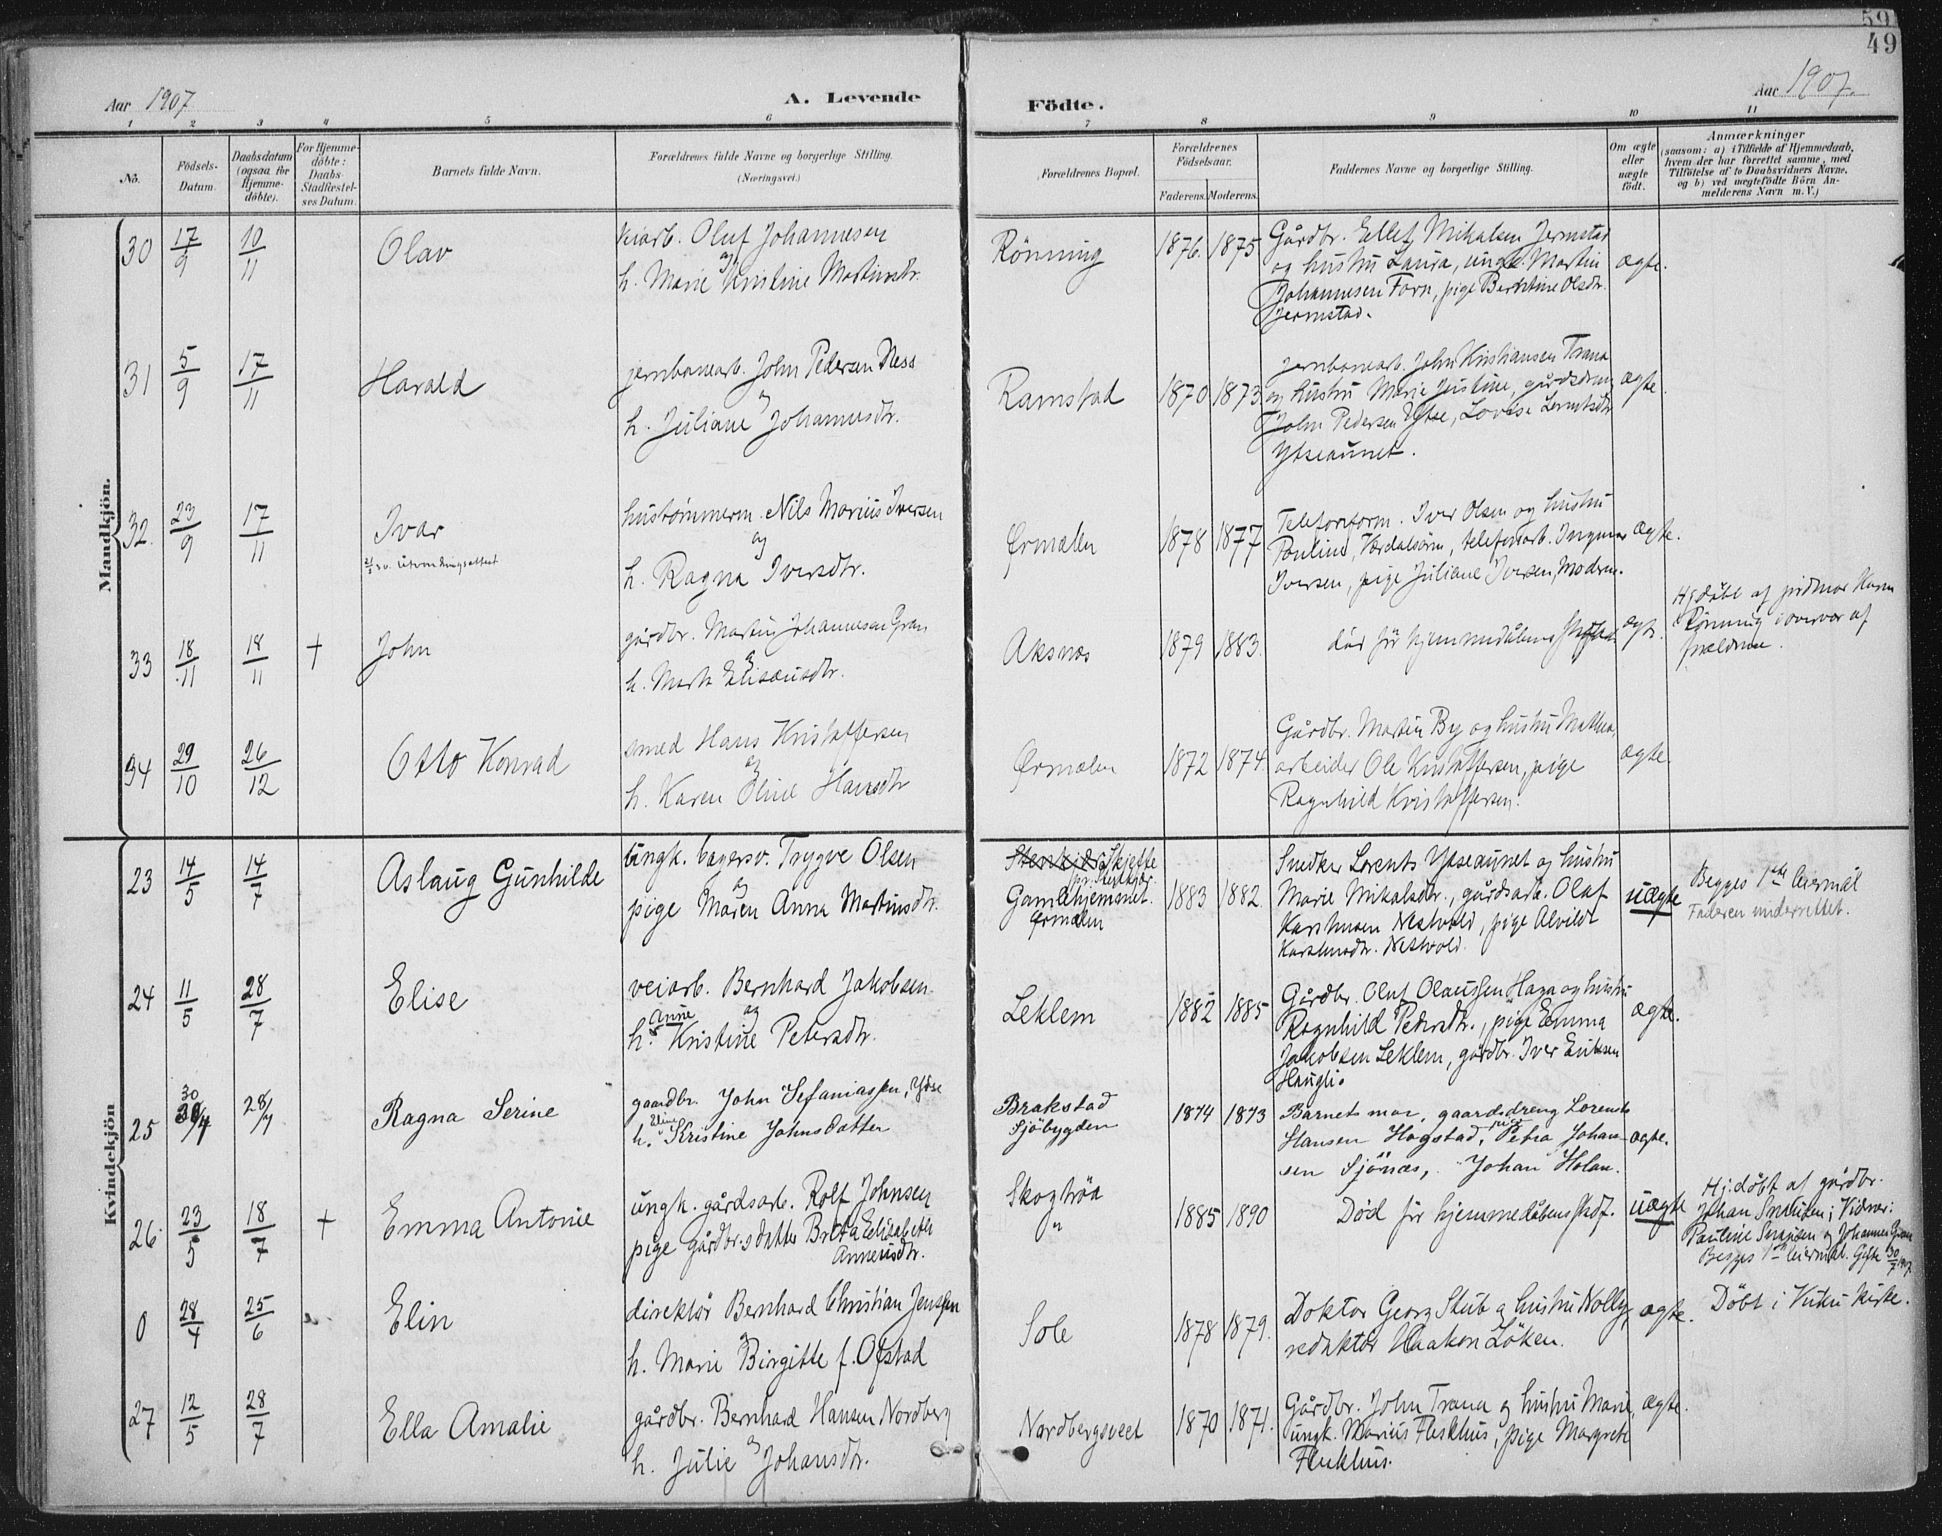 59
49
Aar 1907
A. Levende
Födte.
Aar 1907.
1 2 3 4 5 6 7 8 9 10 11
No.
Födsels-
Datum.
Daabsdatum
(ogsaa for
Hjemme-
döbte).
For Hjemme-
döbte:
Daabs-
Stadfæstel-
ses Datum.
Barnets fulde Navn.
Forældrenes fulde Navne og borgerlige Stilling.
(Næringsvei.)
Forældrenes Bopæl.
Forældrenes
Födselsaar.
Faderens. Moderens.
Faddernes Navne og borgerlige Stilling.
Om ægte
eller
uægte
født.
Anmærkninger
(saasom: a) i Tilfælde af Hjemmedaab,
hvem der har forrettet samme, med
Tilföielse af to Daabsvidners Navne,
og b) ved uægtefödte Börn An-
melderens Navn m. V.)
Mandkjön.
30 17/9 10/11 Olav
veiarb. Oluf Johannesen
og
h. Marie Kristine Martinsdtr.
Rönning 1876. 1875
Gårdbr. Ellef Mikalsen Jermstad
og hustru Laura, ungk. Martin
Johannesen Forn, pige Berntine Olsdr.
Jermstad.
ægte.
31 5/9 17/11 Harald
jernbanearb. John Pedersen Ness
og
h. Juliane Johannesdtr.
Ramstad 1870 1873
jernbanearb. John Kristiansen Trana
og hustru Marie Justine, gårdsdreng
John Pedersen Ytse, Lovise Lorntsdtr
Ytseaunet.
ægte.
32. 23/9 17/11 Ivar
utvandringsattest
hustömmerm. Nils Marius Iversen
og
h. Ragna Iversdtr.
Ørmælen 1878 1877
Telefonform. Iver Olsen og hustru
Pauline, Værdalsören, telefonarb. Ingvar
Iversen, pige Juliane Iversen, Moderen.
ægte.
33 18/11 18/11 + John
gårdbr. Martin Johannesen Gran
og
h. Marta Eliseusdtr.
Aksnes 1879 1883.
död för hjemmedåbens stadf.
ægte.
Hj.döbt af jordmor Karen
Rönning i overvær af
forældrene.
34 29/10 26/12 Otto Konrad
smed Hans Kristoffersen
og
h. Karen Oline Hansdtr
Ørmælen 1872 1874.
Gårdbr. Martin By og hustru Mathea,
arbeider Ole Kristoffersen, pige
Ragnhild Kristoffersen.
ægte.
Kvindekjön
23 14/5 14/7 Aslaug Gunhilde
Ungk. bagersv. Trygve Olsen
og
pige Maren Anna Martinsdtr.
Stenkjær Skjefte
pr. Stenkjær
Gamlehjemsnet.
Ørmælen
1883 1882.
Snedker Lorents Ytseaunet og hustru
Marie Mikalsdtr., gårdsarb. Olaf
Karstensen Nestvold, pige Alvilde
Karstensdtr. Nestvold.
uægte
Begges 1ste leiermål
Faderen underrettet.
24 11/5 28/7 Elise
veiarb. Bernhard Jakobsen
og
Anne
h. Kristine Petersdtr.
Leklem 1882 1885
Gårdbr. Oluf Olaussen Haga og hustru
Ragnhild Pedersdtr., pige Emma
Jakobsen Leklem, gårdbr. Iver Eriksen
Hauglio
ægte.
25 30 30/4 28/7 Ragna Serine
gaardbr. John Sefaniassen, Ydse
Eline
h. Kristine Johnsdatter
Brakstad
Sjöbygden
1874 1873
Barnets mor, gaardsdreng Lorents
Hansen Hogstad, pige Petra Johan-
sen Sjönæs, Johan Holan.
ægte.
26. 23/5 18/7 + Emma Antonie
ungk. gårdsarb. Rolf Johnsen
pige gårdbr.s datter Berta Elisabeth
Anneusdtr.
Skogtröa
"
1885 1890
Död för hjemmedåbens stadf.
uægte
Hj.döbt af gårdbr.
Johan ; Vidner:
Pauline og Johannes
Begges 1ste leiermål. Gifte 30/7 1907.
0 28/4 25/6 Elin
direktör Bernhard Christian Jenssen
og
h. Marie Birgitte f. Ofstad
Sole 1878 1879.
Doktor Georg Skub og hustru Nolly,
redaktör Haakon Löken.
ægte.
Döbt i Vuku kirke.
27 12/5 28/7 Ella Amalie
gårdbr. Bernhard Hansen Nordberg
og
h. Julie Johansdtr.
Nordbergsveet 1870 1871.
Gårdbr. John Trana og hustru Marie,
ungk. Marius Fleskhus, pige Margrete
Fleskhus.
ægte.